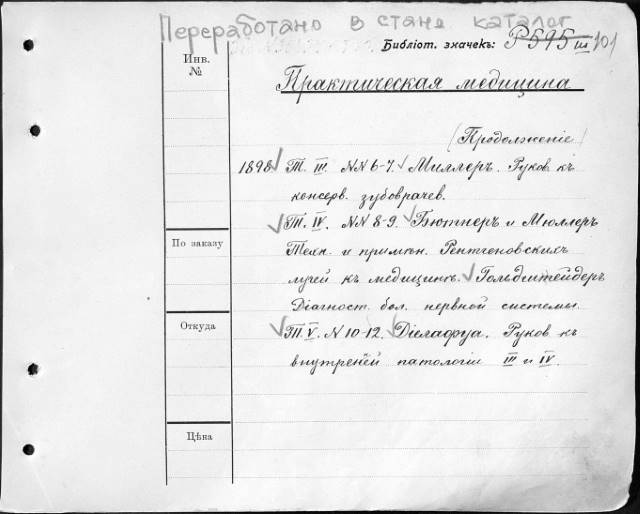 Переработано в стане каталог
Библіот. значекъ: Р595 III 101
Инв.
№
Практическая медицина
(Продолженіе)
1898 Т. III. NN 6-7. Миллеръ. Руков. къ
консерв. зубоврачев.
Т. IV. NN 8-9. Бютнеръ и Мюллеръ
Техн. и примѣн. Рентгеновскихъ
По заказу
лучей къ медицинѣ. Гольдштейдеръ
Діагност. бол. нервной системы.
Откуда
Т. V. N 10-12. Діелафуа. Руков. къ
внутреней патологіи III и IV.
Цѣна